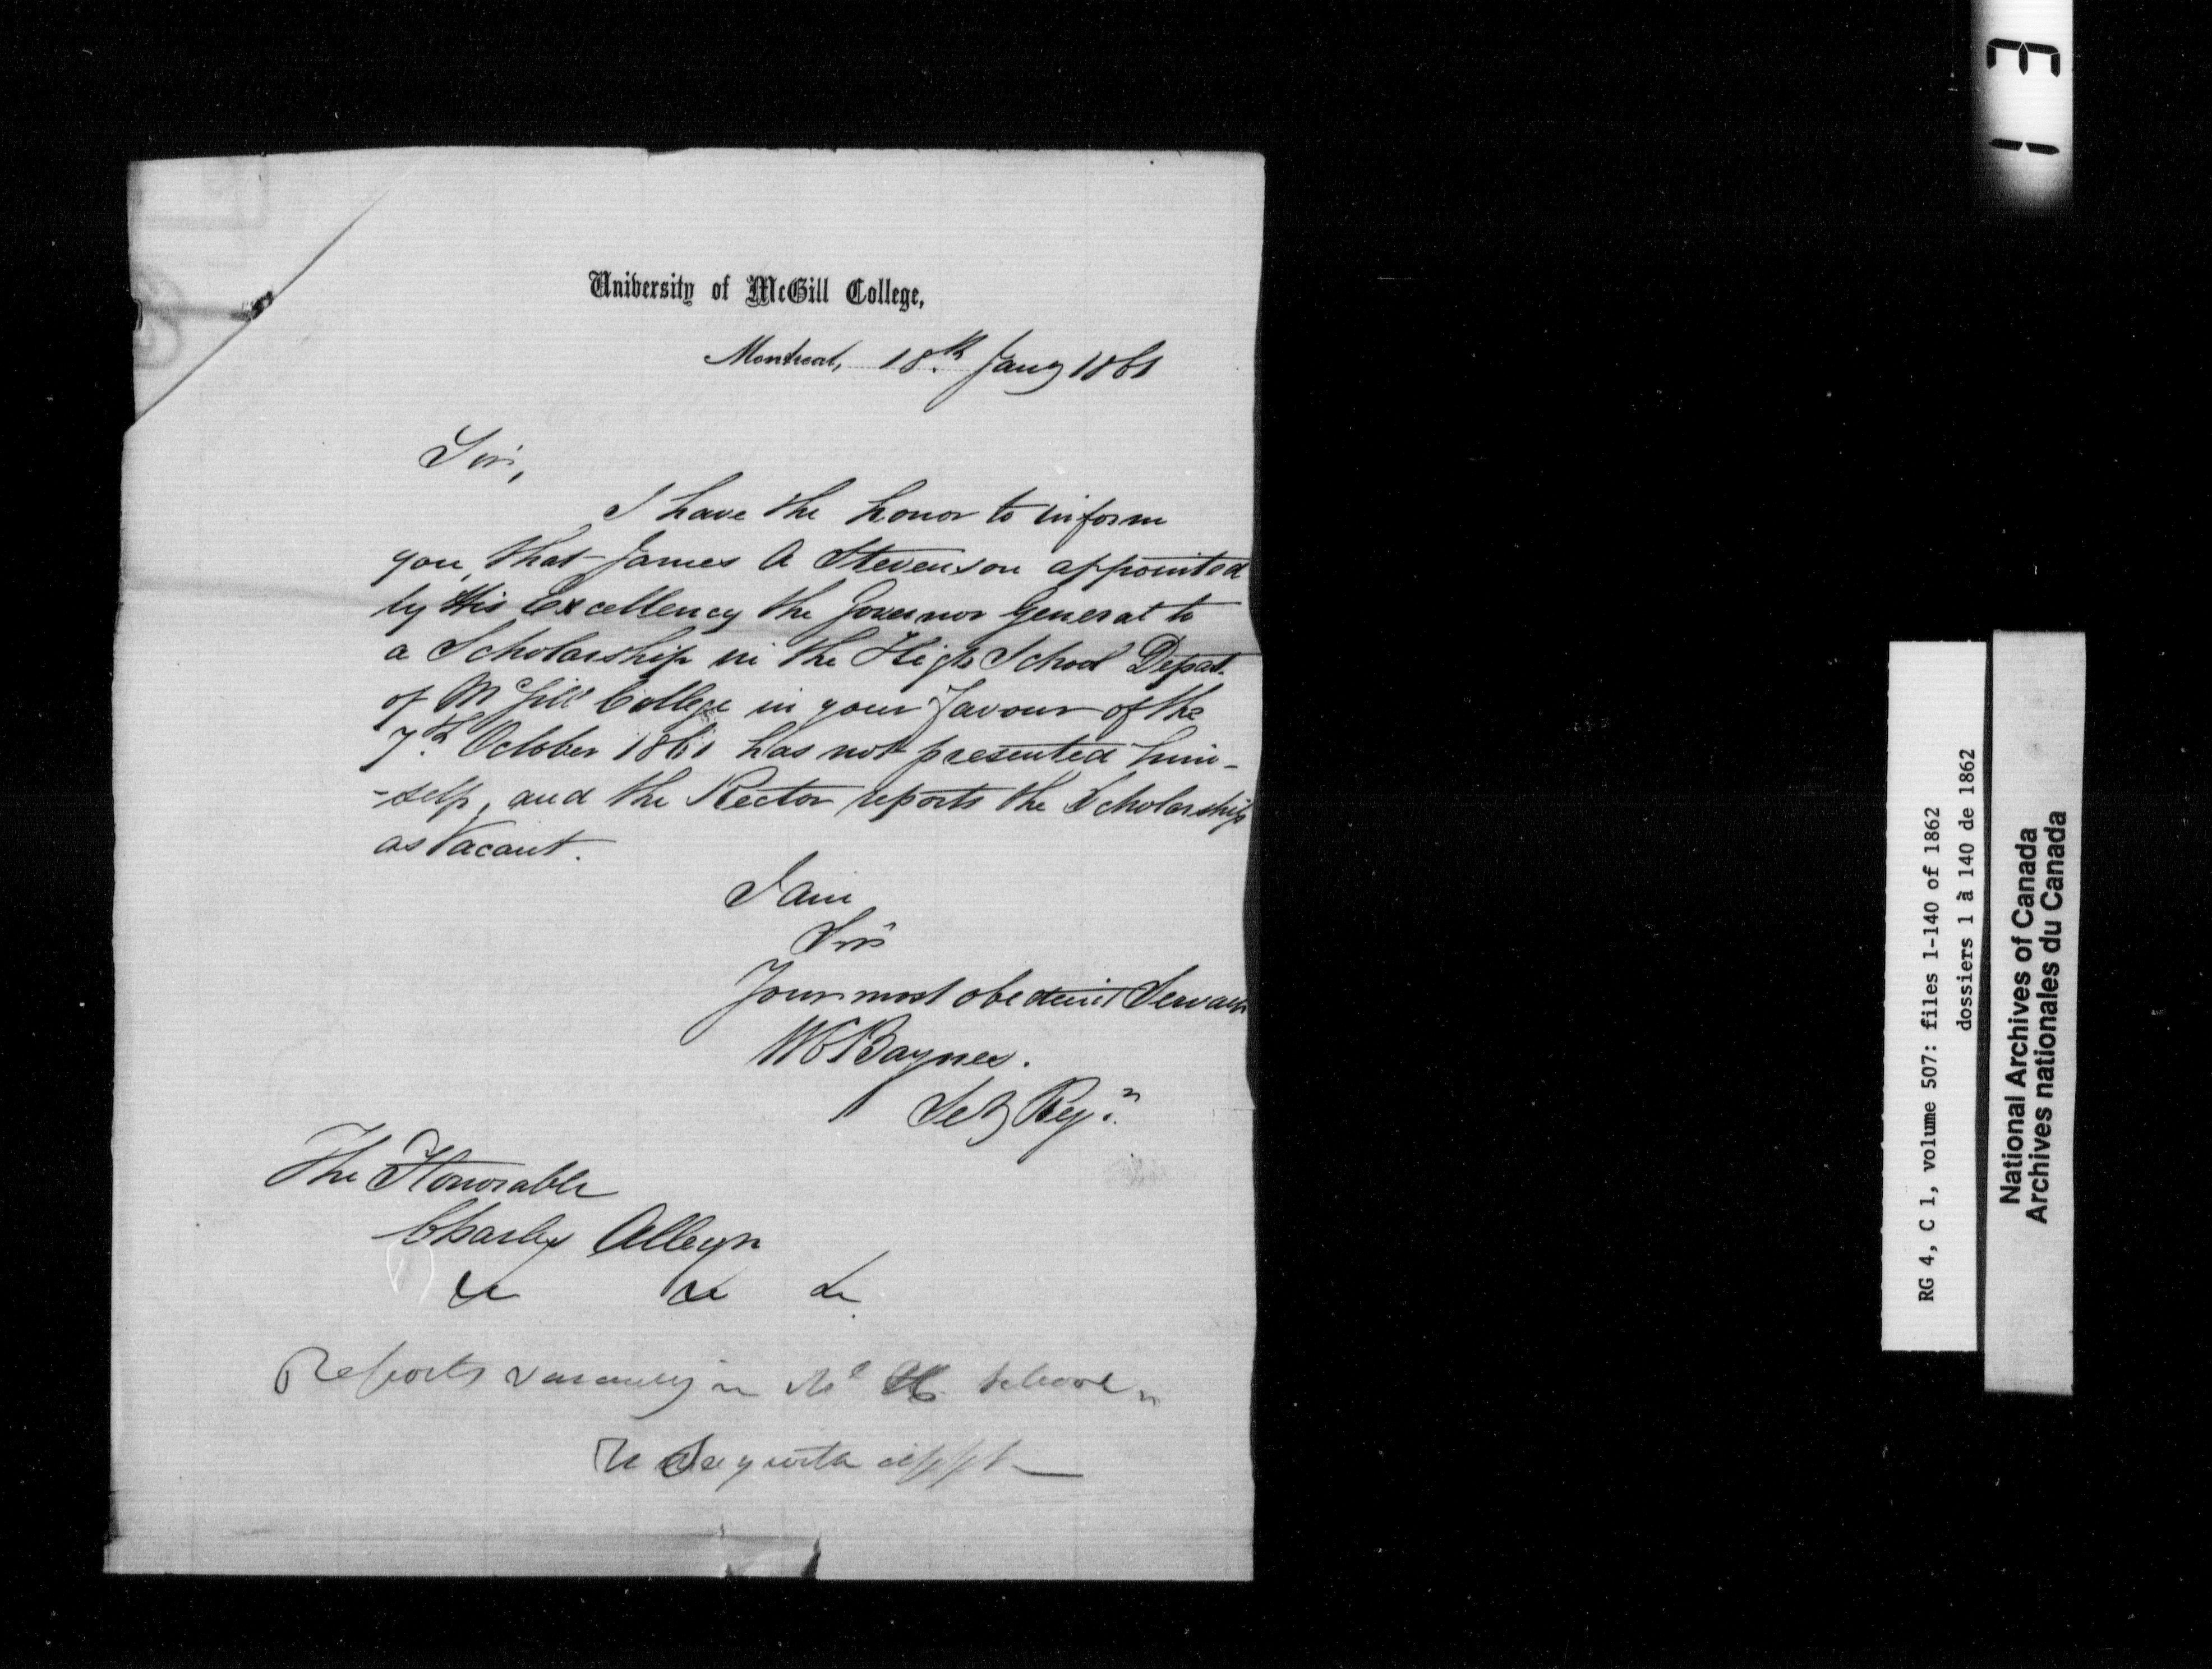 University of McGill College,
Montreal, 18th. Jany 1861
Sir,
I have the honor to inform
you, that James A Stevenson appointed
by His Excellency the Governor General to
a Scholarship in the High School Depat.
of McGill College in your favour of the
7th. October 1861 has not presented him-
-self, and the Rector reports the Scholarship
as Vacant.
I am
Sir
Your most obedient Servant
W C Baynes.
Sey
The Honorable
Charles Alleyn
&c &c &c
Reports vacancy in School
with appt
13
RG 4, C 1, volume 507: files 1-140 of 1862
dossiers 1 à 140 de 1862
National Archives of Canada
Archives nationales du Canada